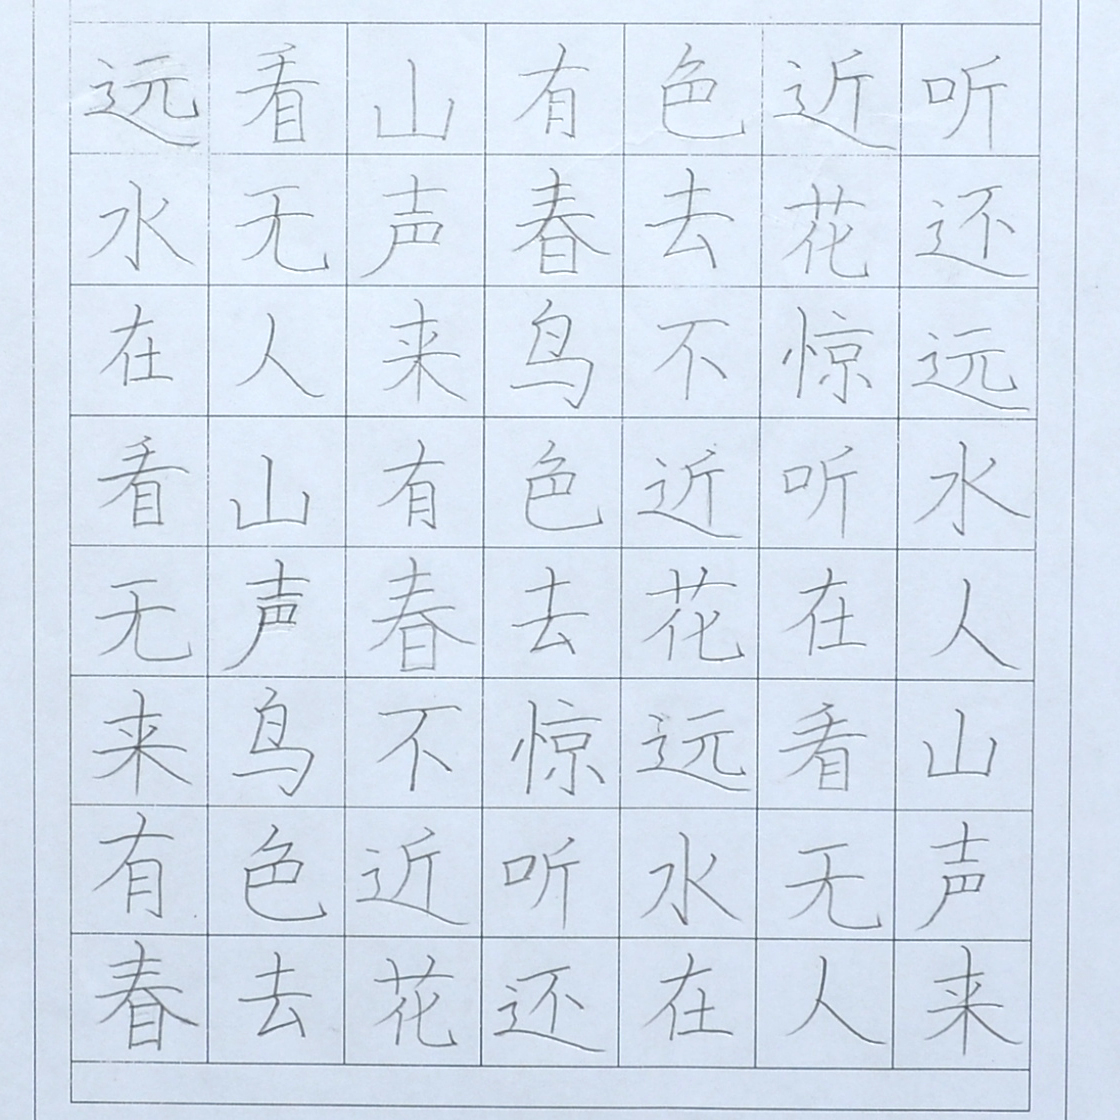 远看山有色近听
水无声春去花还
在人来鸟不惊远
看山有色近听水
无声春去花在人
来鸟不惊远看山
有色近听水无声
春去花还在人来